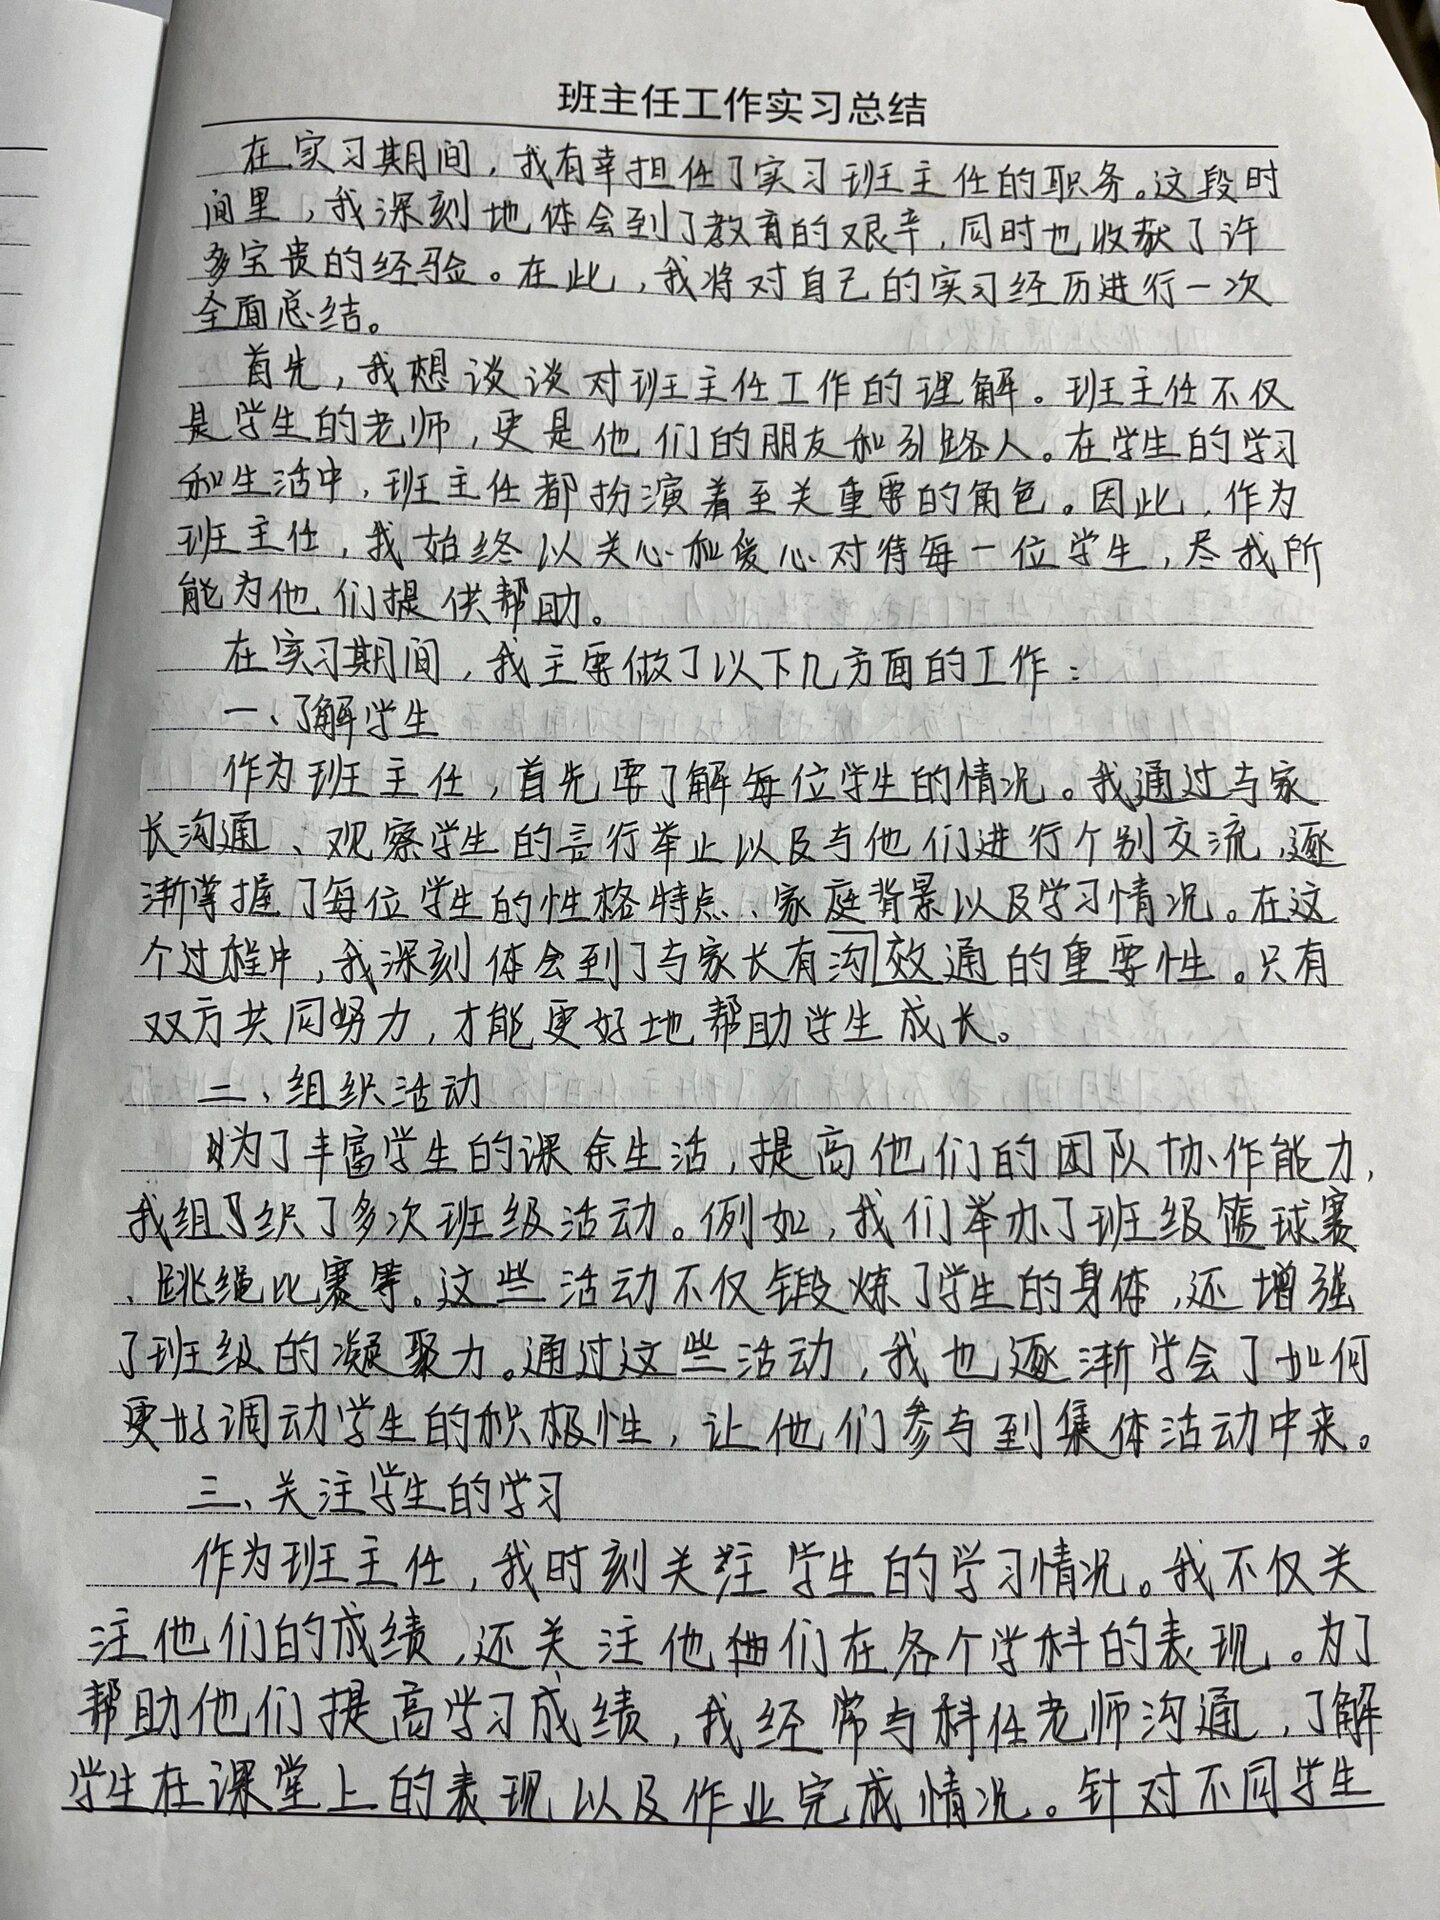 班主任工作实习总结
在实习期间，我有幸担任了实习班主任的职务。这段时
间里，我深刻地体会到了教育的艰辛，同时也收获了许
多宝贵的经验。在此，我将对自己的实习经历进行一次
全面总结。
首先，我想谈谈对班主任工作的理解。班主任不仅
是学生的老师，更是他们的朋友和引路人。在学生的学习
和生活中，班主任都扮演着至关重要的角色。因此，作为
班主任，我始终以关心和爱心对待每一位学生，尽我所
能为他们提供帮助。
在实习期间，我主要做了以下几方面的工作：
一、了解学生
作为班主任，首先要了解每位学生的情况。我通过与家
长沟通、观察学生的言行举止以及与他们进行个别交流，逐
渐掌握了每位学生的性格特点、家庭背景以及学习情况。在这
个过程中，我深刻体会到了与家长有沟效通的重要性。只有
双方共同努力，才能更好地帮助学生成长。
二、组织活动
为了丰富学生的课余生活，提高他们的团队协作能力，
我组织了多次班级活动。例如，我们举办了班级篮球赛
、跳绳比赛等。这些活动不仅锻炼了学生的身体，还增强
了班级的凝聚力。通过这些活动，我也逐渐学会了如何
更好调动学生的积极性，让他们参与到集体活动中来。
三、关注学生的学习
作为班主任，我时刻关注学生的学习情况。我不仅关
注他们的成绩，还关注他们在各个学科的表现。为了
帮助他们提高学习成绩，我经常与科任老师沟通，了解
学生在课堂上的表现以及作业完成情况。针对不同学生